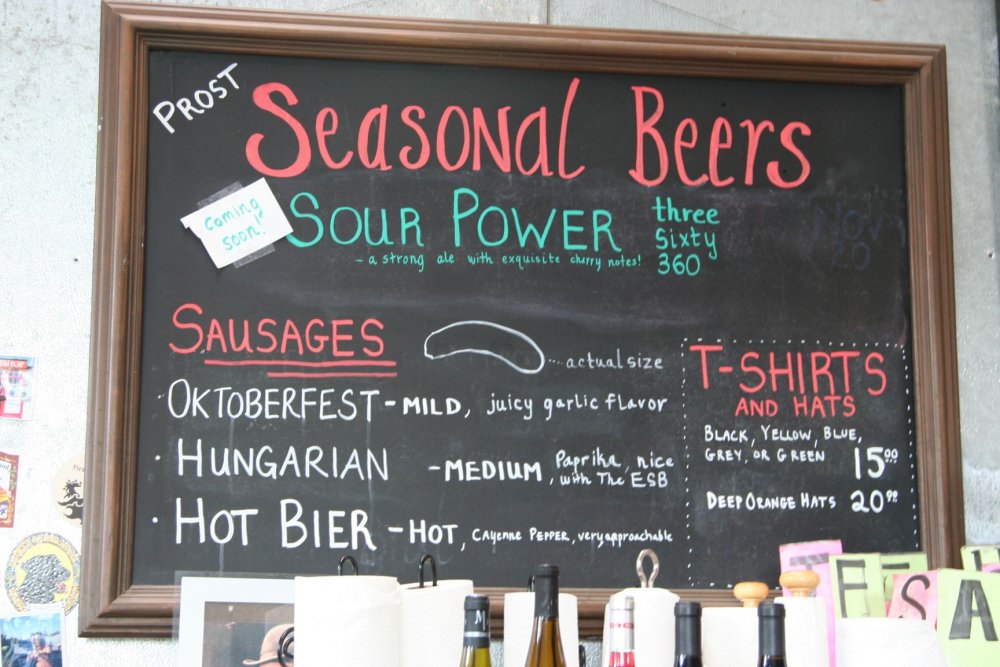 PROST
Seasonal Beers
coming soon!
SOUR POWER
three
Sixty
360
- a strong ale with exquisite cherry notes!
SAUSAGES
...actual size
OKTOBERFEST - MILD, juicy garlic flavor
· HUNGARIAN - MEDIUM, Paprika, nice with The ESB
· HOT BIER - HOT, CAyenne PEPPER, very approachable
T-SHIRTS
AND HATS
BLACK, YELLOW, BLUE,
GREY, OR GREEN 15.00
DEEP ORANGE HATS 20.00
F
S
A